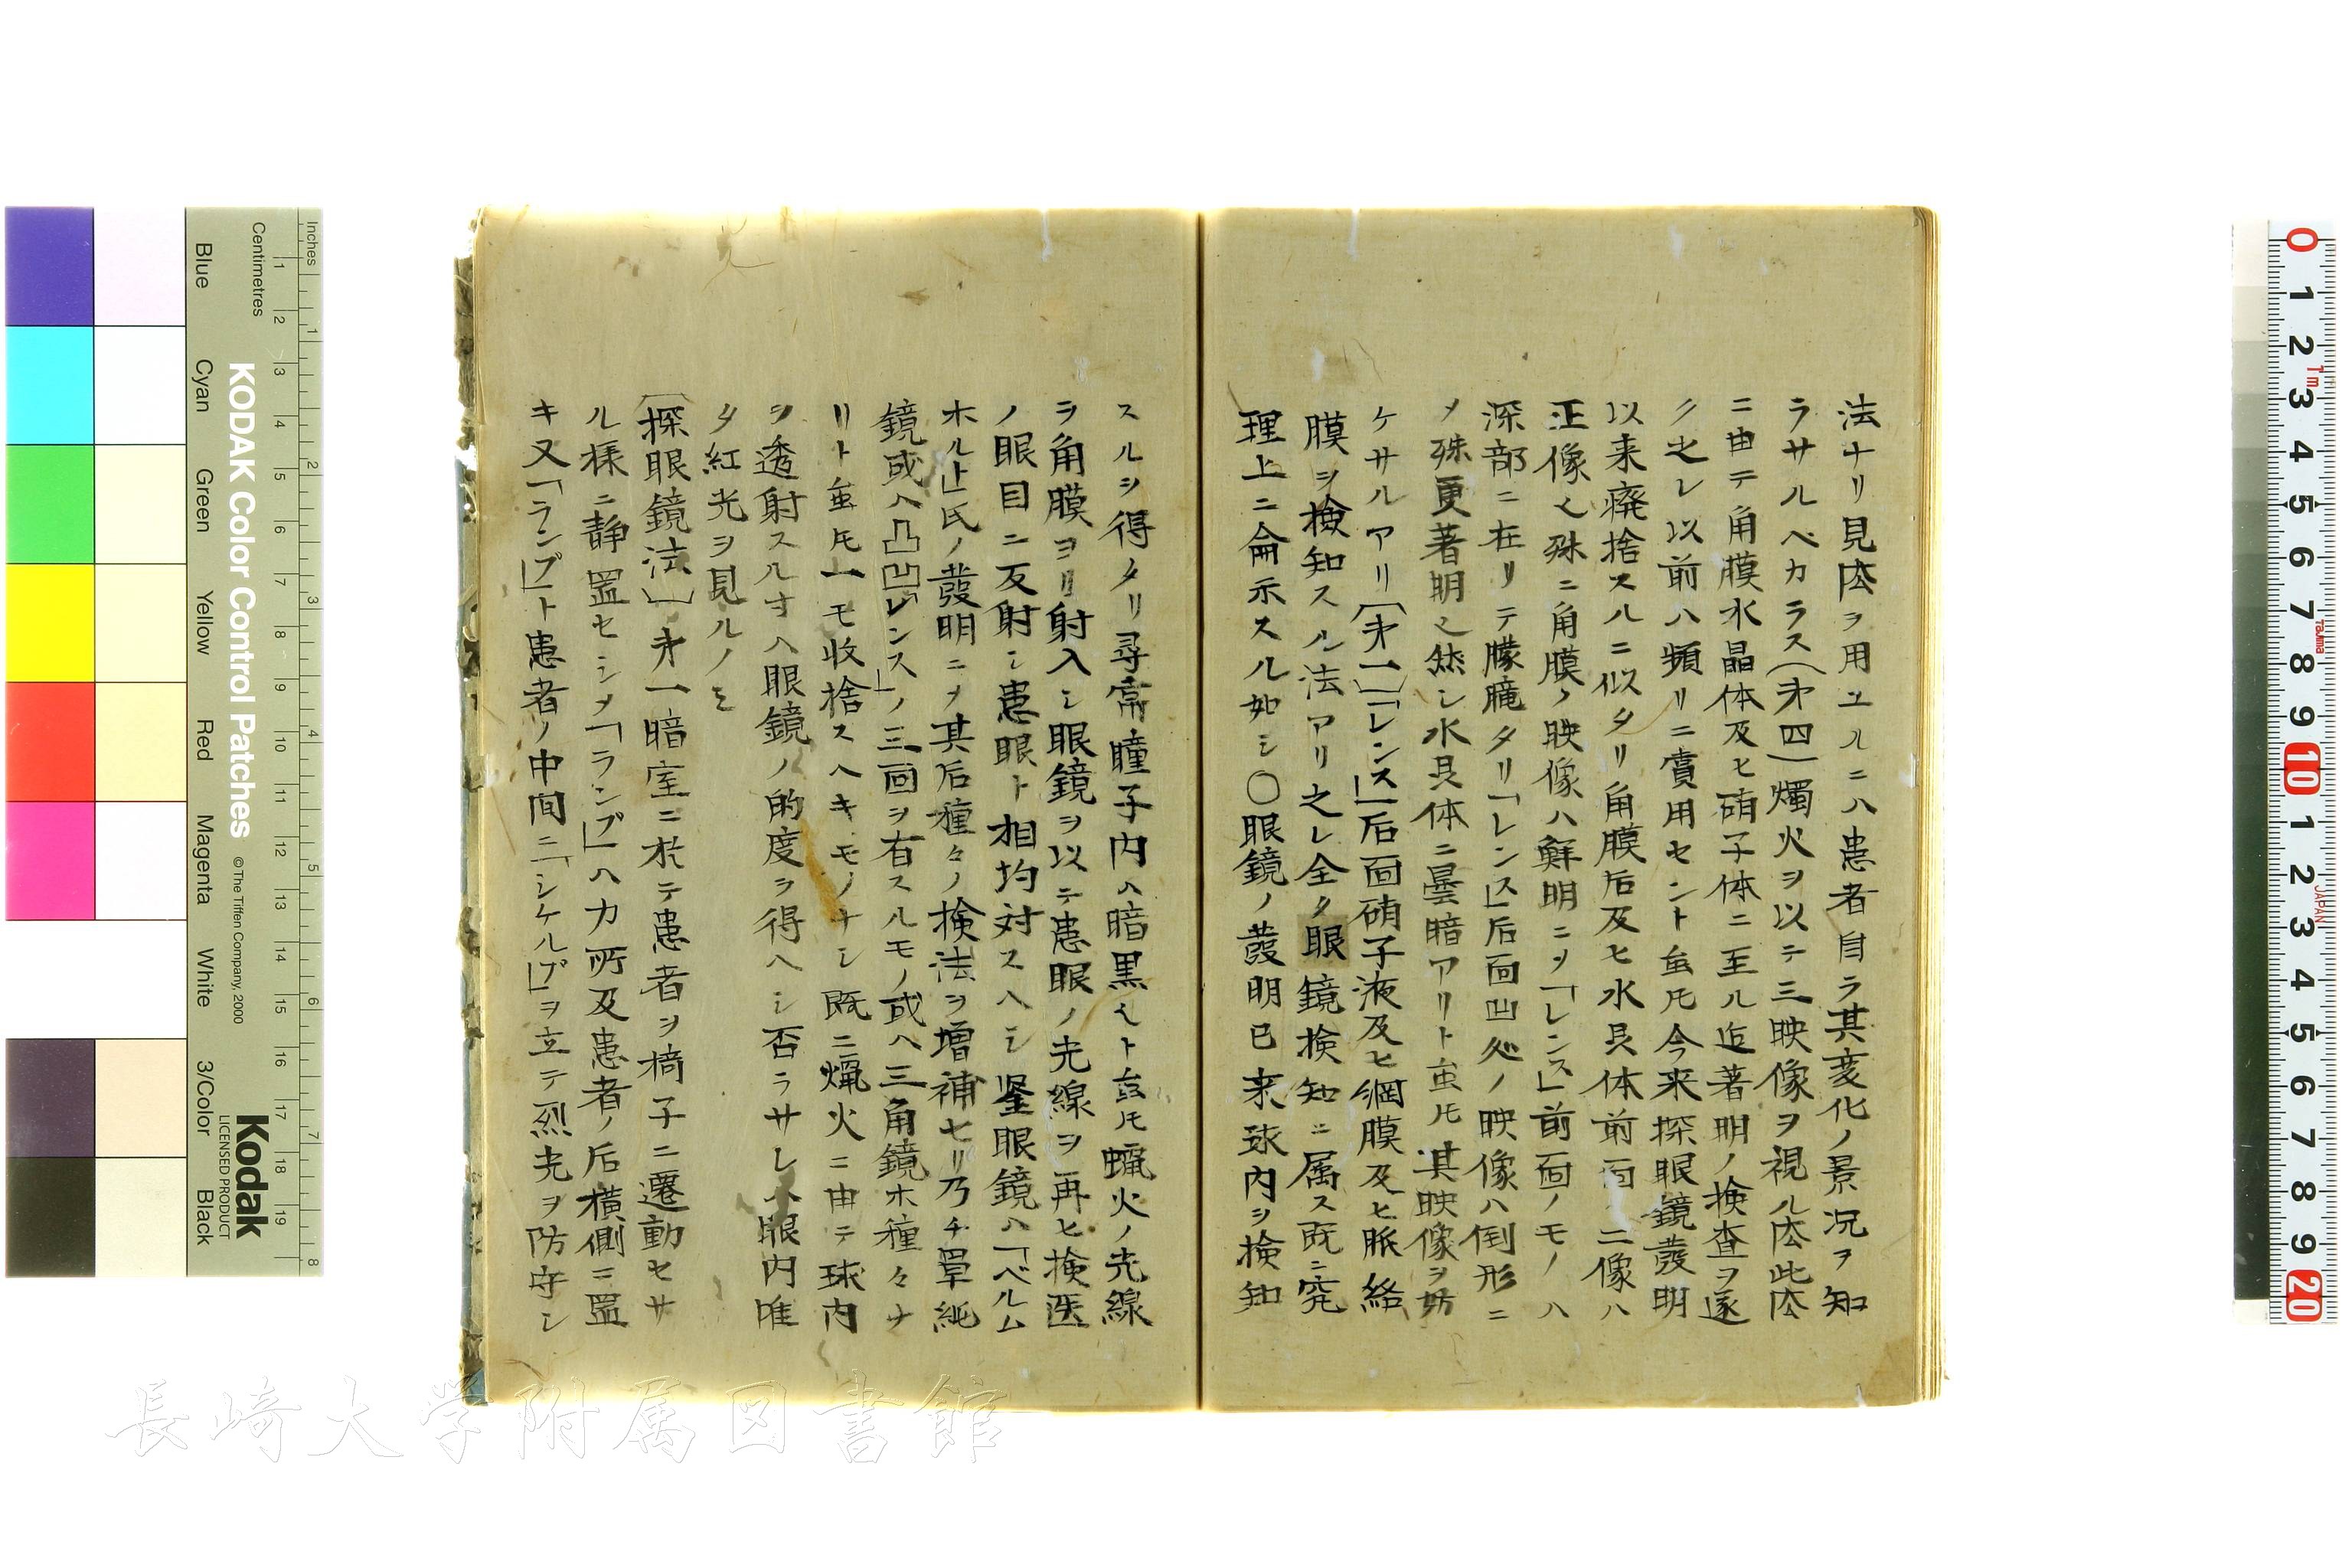 法ナリ見点ヲ用ユルニハ患者自ラ其変化ノ景況ヲ知
ラサルベカラス(㐧四)燭火ヲ以テ三映像ヲ視ル法此法
ニ由テ角膜水晶体及ヒ硝子体ニ至ル迄著明ノ検査ヲ遂
ク之レ以前ハ頻リニ賞用セント虽𪜈今来探眼鏡發明
以来廃捨スルニ似タリ角膜后及ヒ水晶体前面二像ハ
正像乄殊ニ角膜ノ映像ハ鮮明ニヲ「レンス」前面ノモノハ
深部ニ在リテ朦朧タリ「レンス」后面凹処ノ映像ハ倒形ニ
メ殊更著明乄然レ水晶体ニ曇暗アリト虽𪜈其映像ヲ妨
ケサルアリ(㐧一)「レンス」后面硝子液及ヒ網膜及ヒ脈絡
膜ヲ検知スル法アリ之レ全タ眼鏡検知ニ属ス既ニ究
理上ニ侖示スル如シ〇眼鏡ノ發明已来球内ヲ検知
スルヲ得タリ尋常瞳子内ハ暗黒乄ト虽𪜈蝋火ノ光線
ヲ角膜ヨリ射入シ眼鏡ヲ以テ患眼ノ光線ヲ再ヒ検医
ノ眼目ニ反射シ患眼ト相均対スヘシ鑒眼鏡ハ「ベルム
ホルト」氏ノ發明ニヲ其后種々ノ検法ヲ増補セリ乃チ單純
鏡或ハ凸凹「レンス」ノ三面ヲ有スルモノ或ハ三角鏡ホ種々ナ
リト虽𪜈一モ收捨スヘキモノナシ既ニ蝋火ニ由テ球内
ヲ透射スルヿハ眼鏡ノ的度ヲ得ヘシ否ラサレハ眼内唯
タ紅光ヲ見ルノミ
(探眼鏡法)㐧一暗室ニ於テ患者ヲ椅子ニ遷動セサ
ル様ニ静置セシメ「ランプ」ハカ所及患者ノ后横側ニ置
キ又「ランプ」ト患者ノ中間ニ「シケルプ」ヲ立テ烈光ヲ防守シ
Inches
Centimetres
KODAK Color Control Patches
©The Tiffen Company, 2000
Kodak
LICENSED PRODUCT
Blue
Cyan
Green
Yellow
Red
Magenta
White
3/Color
Black
長崎大学附属図書館